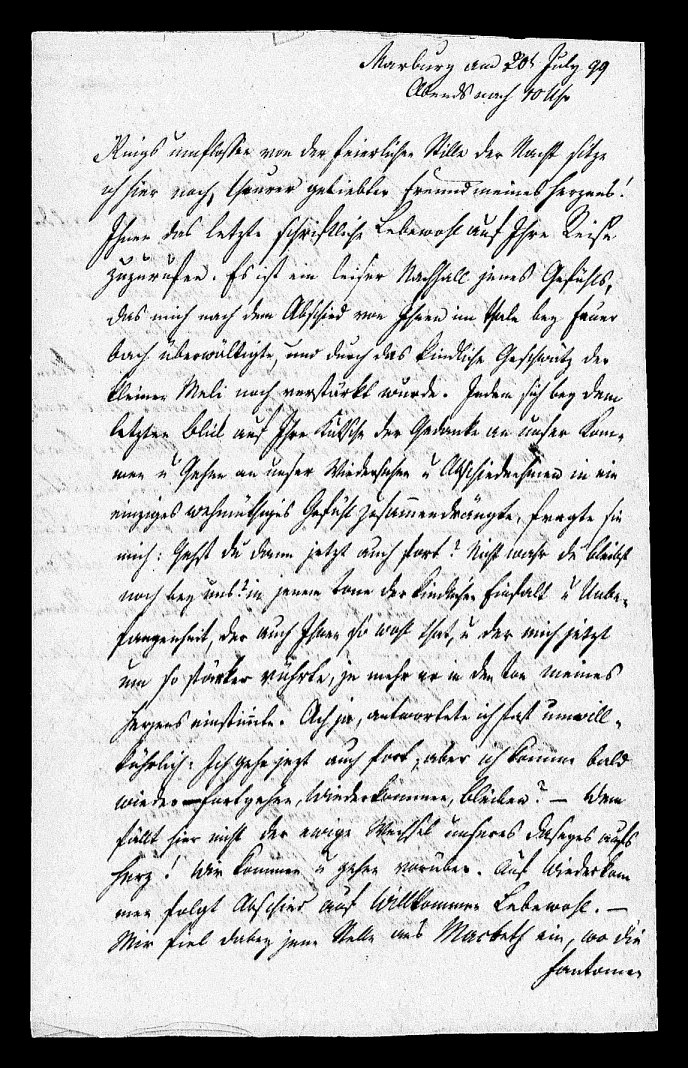 Marburg am 20t July 99
Abends nach 10 Uhr
Rings umflossen von der feierlichen Stille der Nacht sitze
ich hier noch, theurer geliebter Freund meines Herzens!
Ihnen das letzte schriftliche Lebewohl auf Ihre Reise
zuzurufen. Es ist ein leiser Nachhall jenes Gefühls,
das mich nach dem Abschied von Ihnen im Thale bey Feuer
bach überwältigte, und durch das kindliche Geschwätz der
kleinen Meli noch verstärkt wurde. Indem sich bey dem
letzten Blick auf Ihre Kutsche der Gedanke an unser Kom-
men u Gehen an unser Wiedersehen u Abschiednehmen in ein
einziges wehmüthiges Gefühl zusammendrängte, fragte sie
mich: Gehst du dann jetzt auch fort? Nicht wahr du bleibst
noch bey uns? in jenem Tone der kindlichen Einfalt u Unbe-
fangenheit, der auch Ihnen so wohl that, u der mich jetzt
um so stärker rührte, je mehr er in den Ton meines
Herzens einstimmte. Ach ja, antwortete ich fast unwill-
kührlich: Ich gehe jezt auch fort, aber ich komme bald
wieder – fortgehen, Wiederkommen, bleiben? – Wem
fällt hier nicht der ewige Wechsel unseres Daseyns aufs
Herz! Wir kommen u gehen vorüber. Auf Wiederkom
men folgt Abschied auf Willkommen Lebewohl. –
Mir fiel dabey jene Stelle aus Macbeth ein, wo die
Fantomen